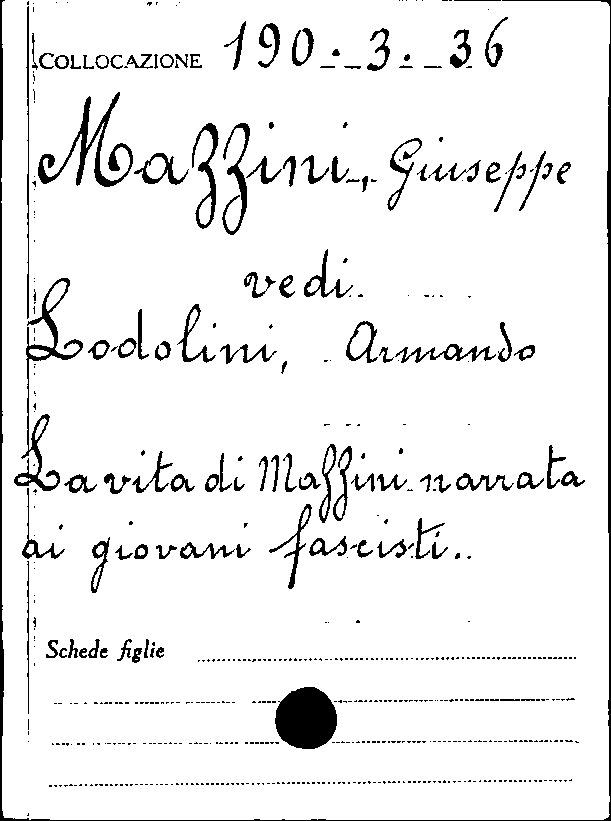 COLLOCAZIONE 190.3.36
Mazzini, Giuseppe
vedi
Lodolini, Armando
La vita di Mazzini narrata
ai giovani fascisti..
Schede figlie